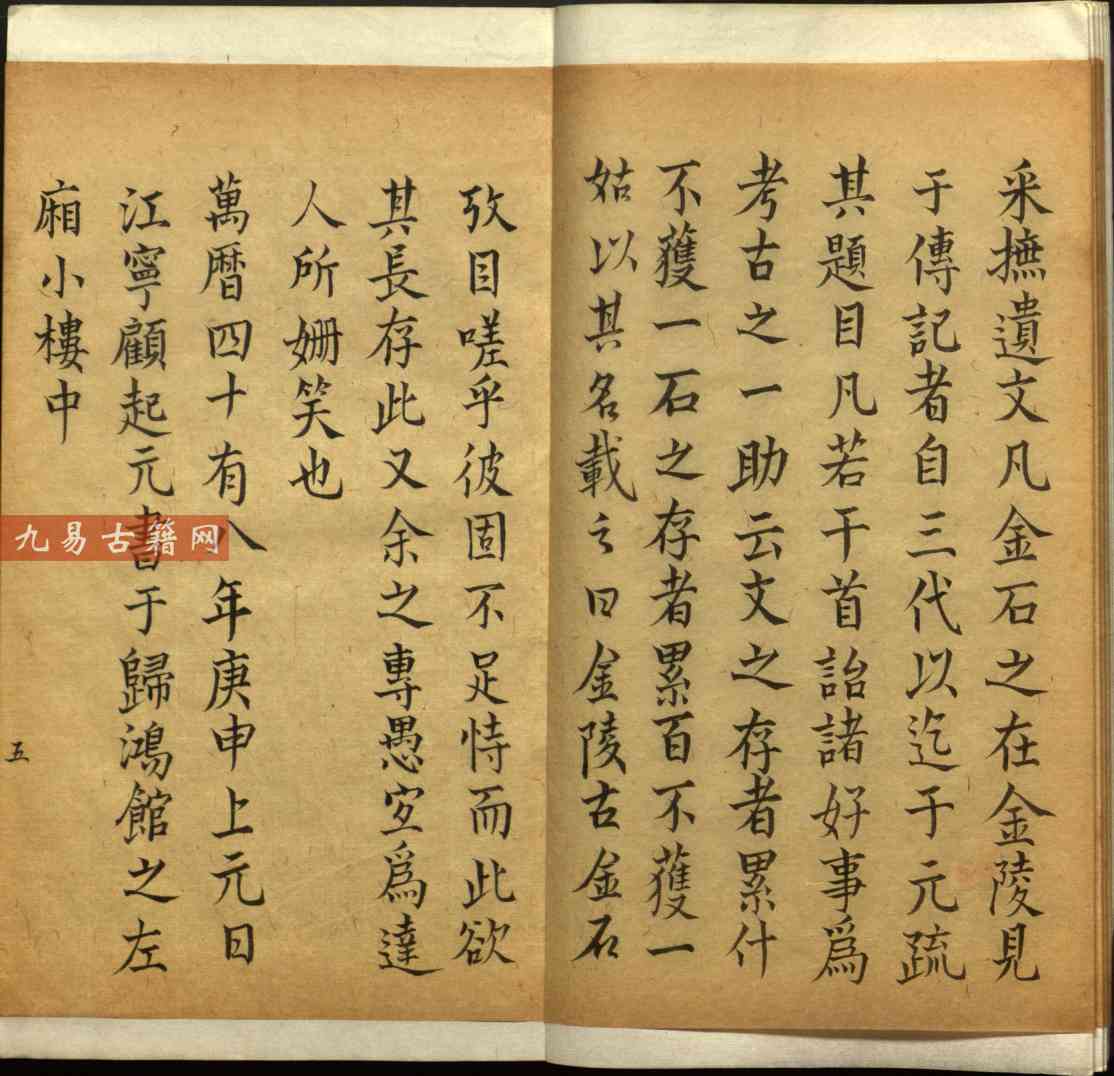 采摭遺文凡金石之在金陵見
于傳記者自三代以迄于元疏
其題目凡若干首詒諸好事爲
考古之一助云文之存者累什
不獲一石之存者累百不獲一
姑以其名載之曰金陵古金石
攷目嗟乎彼固不足恃而此欲
其長存此又余之專愚宐爲達
人所姍笑也
萬曆四十有八年庚申上元日
江寧顧起元書于歸鴻館之左
廂小樓中
五
九易古籍网